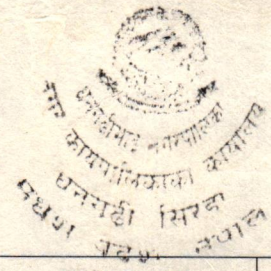 धनगढीमाई नगरपालिका
नगर कार्यपालिकाको कार्यालय
धनगढी सिरहा
प्रदेश नेपाल